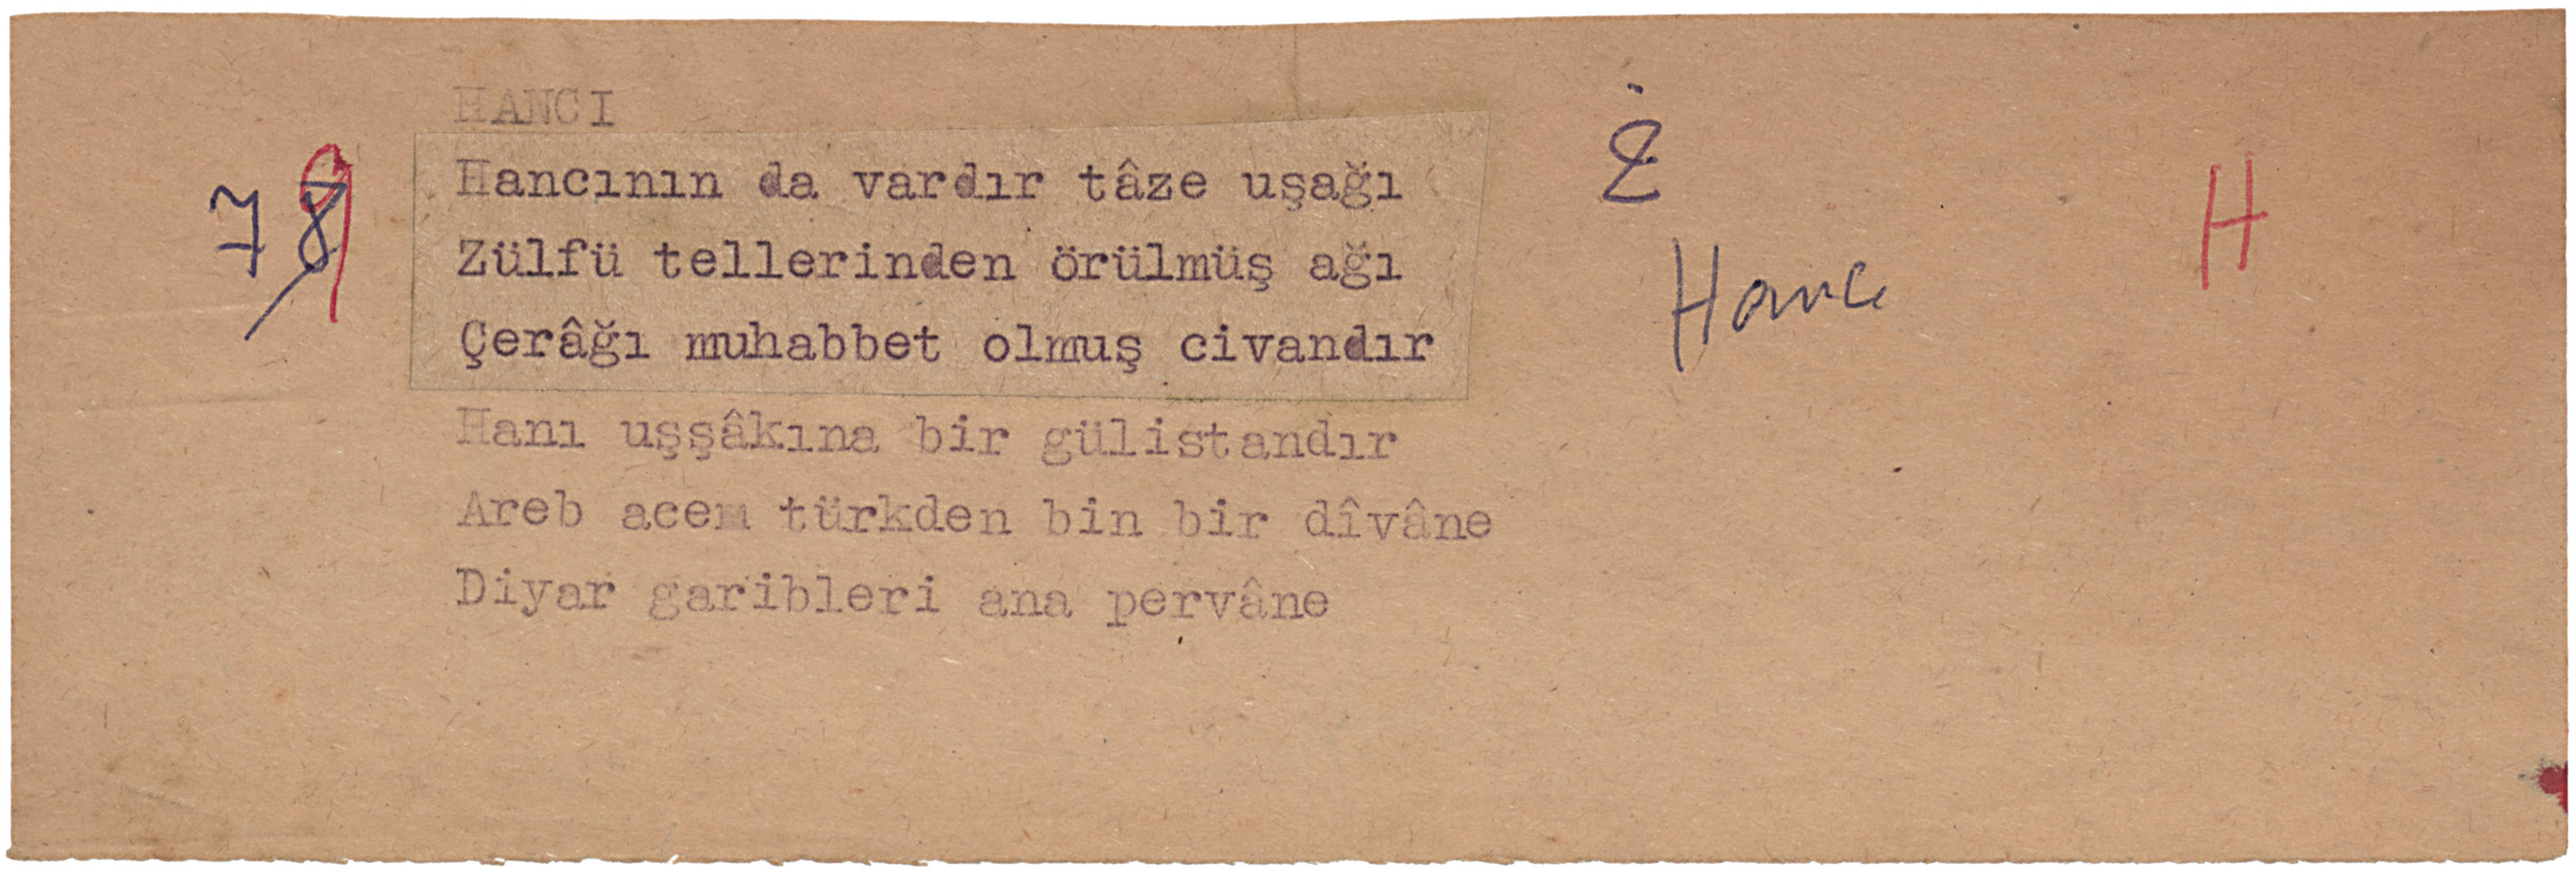 HANCI
Hancının da vardır tâze uşağı
Zülfü tellerinden örülmüş ağı
Çerâğı muhabbet olmuş civandır
Hanı uşşâkına bir gülistandır
Areb acem türkden bin bir dîvâne
Diyar garibleri ana pervâne
79
Hancı
H